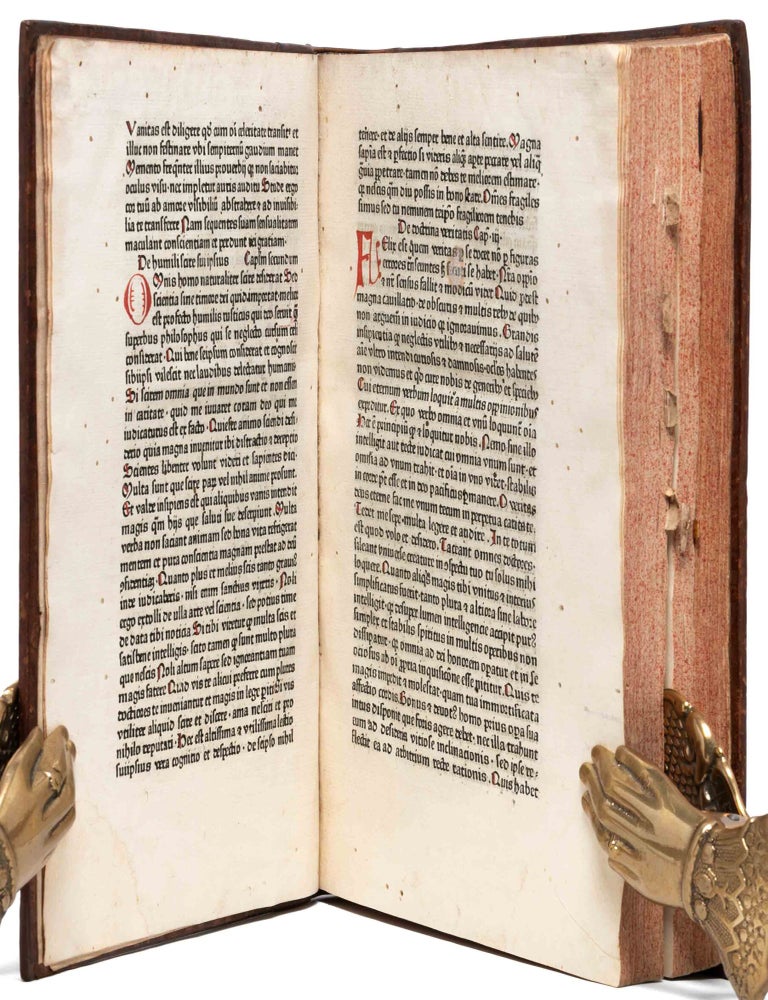 Vanitas est diligere qđ cum oī celeritate transit· et
illuc non festinare vbi sempiternū gaudium manet
Memento freqnter illius prouerbij q non saciabit
oculus visu· nec impletur auris auditu Stude ergo
cor tuū ab amore visibiliū abstrahere ⁊ ad inuisibi
lia te transferre Nam sequentes suam sensualitatem
maculant conscientiam et perdunt dei gratiam·
De humili scire sui ipsius Capłm secundum
Omnis homo naturaliter scire desiderat Sed
scientia sine timore dei quid importat· melior
est profecto humilis rusticus qui deo seruit q̄
superbus philosophus qui se neglecto cursum celi
considerat· Qui bene seipsum considerat et cognoscit
sibiipsi vilescit nec laudibus delectatur humanis
Si scirem omnia que in mundo sunt et non essem
in caritate· quid me iuuaret coram deo qui me
iudicaturus est ex facto· Quiesce animo sciendi desi-
derio quia magna inuenitur ibi distractio ⁊ deceptio
Scientes libenter volunt videri et sapientes dici
Multa sunt que scire parū vel nihil anime prosunt·
Et valde insipiens est qui aliquibus vanis intendit
magis qm̄ hijs que saluti sue deseruiunt· Multa
verba non saciant animam sed bona vita refrigerat
mentem et pura conscientia magnam prestat ad deū
ꝯfidentiā· Quanto plus et melius scis tanto grauiꝰ
inde iudicaberis· nisi enim sanctius vixeris· Noli
ergo extolli de vlla arte vel scientia· sed potius time
de data tibi noticia Si tibi videtur q multa scis et
satis bene intelligis· scito tamen q sunt multo plura
que nescis Noli altum sapere sed ignorantiam tuam
magis fatere Quid vis te alicui preferre cum plures
doctiores te inueniantur et magis in lege periti vis
vtiliter aliquid scire et discere· ama nesciri et pro
nihilo reputari· Hec est altissima ⁊ vtilissima lectio
suiipsius vera cognitio et despectio· de seipso nihil
tenere· et de alijs semper bene et alta sentire· Magna
sapīa est ⁊ pfectio si videris aliq̄ apte peccare vel aliq̄
guia ppetrare· tamen nō debes te meliorem estimare·
q nescis qm̄ diu possis in bono stare· Oīnes fragiles
sumus sed tu neminem teipō fragiliorem tenebis
De doctrina veritatis Cap· iij·
Felix est quem veritas p se docet nō p figuras
et voces trāseuntes s; sicuti se habet· Nr̄a opīo
⁊ nr̄ sensus fallit ⁊ modicū videt Quid pdest
magna cauillatio de obscuris ⁊ multis rebꝰ de quibꝰ
non arguem̄ in iudicio q ignorauimus· Grandis
insipientia q neglectis vtilibꝰ ⁊ necessarijs ad salutē
aīe vltro intendi curiosis ⁊ damnosis· oclos habentes
non videmus et qđ cure nobis de generibꝰ et speciebꝰ
Cui eternum verbum loquit̄ a multis oppinionibus
expeditur· Ex quo verbo omnia et vnū loquunt̄ oīa
Hic ē principiū q ⁊ loquitur nobis· Nemo sine illo
intelligit aut recte iudicat cui omnia vnum sunt· et
omnia ad vnum trahit· et oīa in vno videt· stabilis
in corde pt̄ esse et in deo pacificus pmanere· O veritas
deus eterne fac me vnum tecum in perpetua caritate·
Tedet me sepe· multa legere et audire· In te totum
est quod volo et desidero· Taceant omnes doctores·
sileant vniuerse creature in ꝯspectu tuo tu solus mihi
loquere· Quanto aliqs magis tibi vnitus ⁊ interius
simplificatus fuerit· tanto plura ⁊ altiora sine labore
intelligit· q desuper lumen intelligencie accipit purꝰ
simplex et stabilis spiritus in multis operibus non
dissipatur· q omnia ad dei honorem operatur et in se
ociosus ab oī ꝓpria inquisicōne esse nititur· Quis te
magis impedit ⁊ molestat· quam tua immortificata
affectio cordis· Bonus ⁊ deuotꝰ homo prius opa sua
intus disponit que foris agere debet· nec illa trahunt
eum ad desideria viciose inclinacionis· sed ipse re-
flectit ea ad arbitrium recte rationis· Quis habet